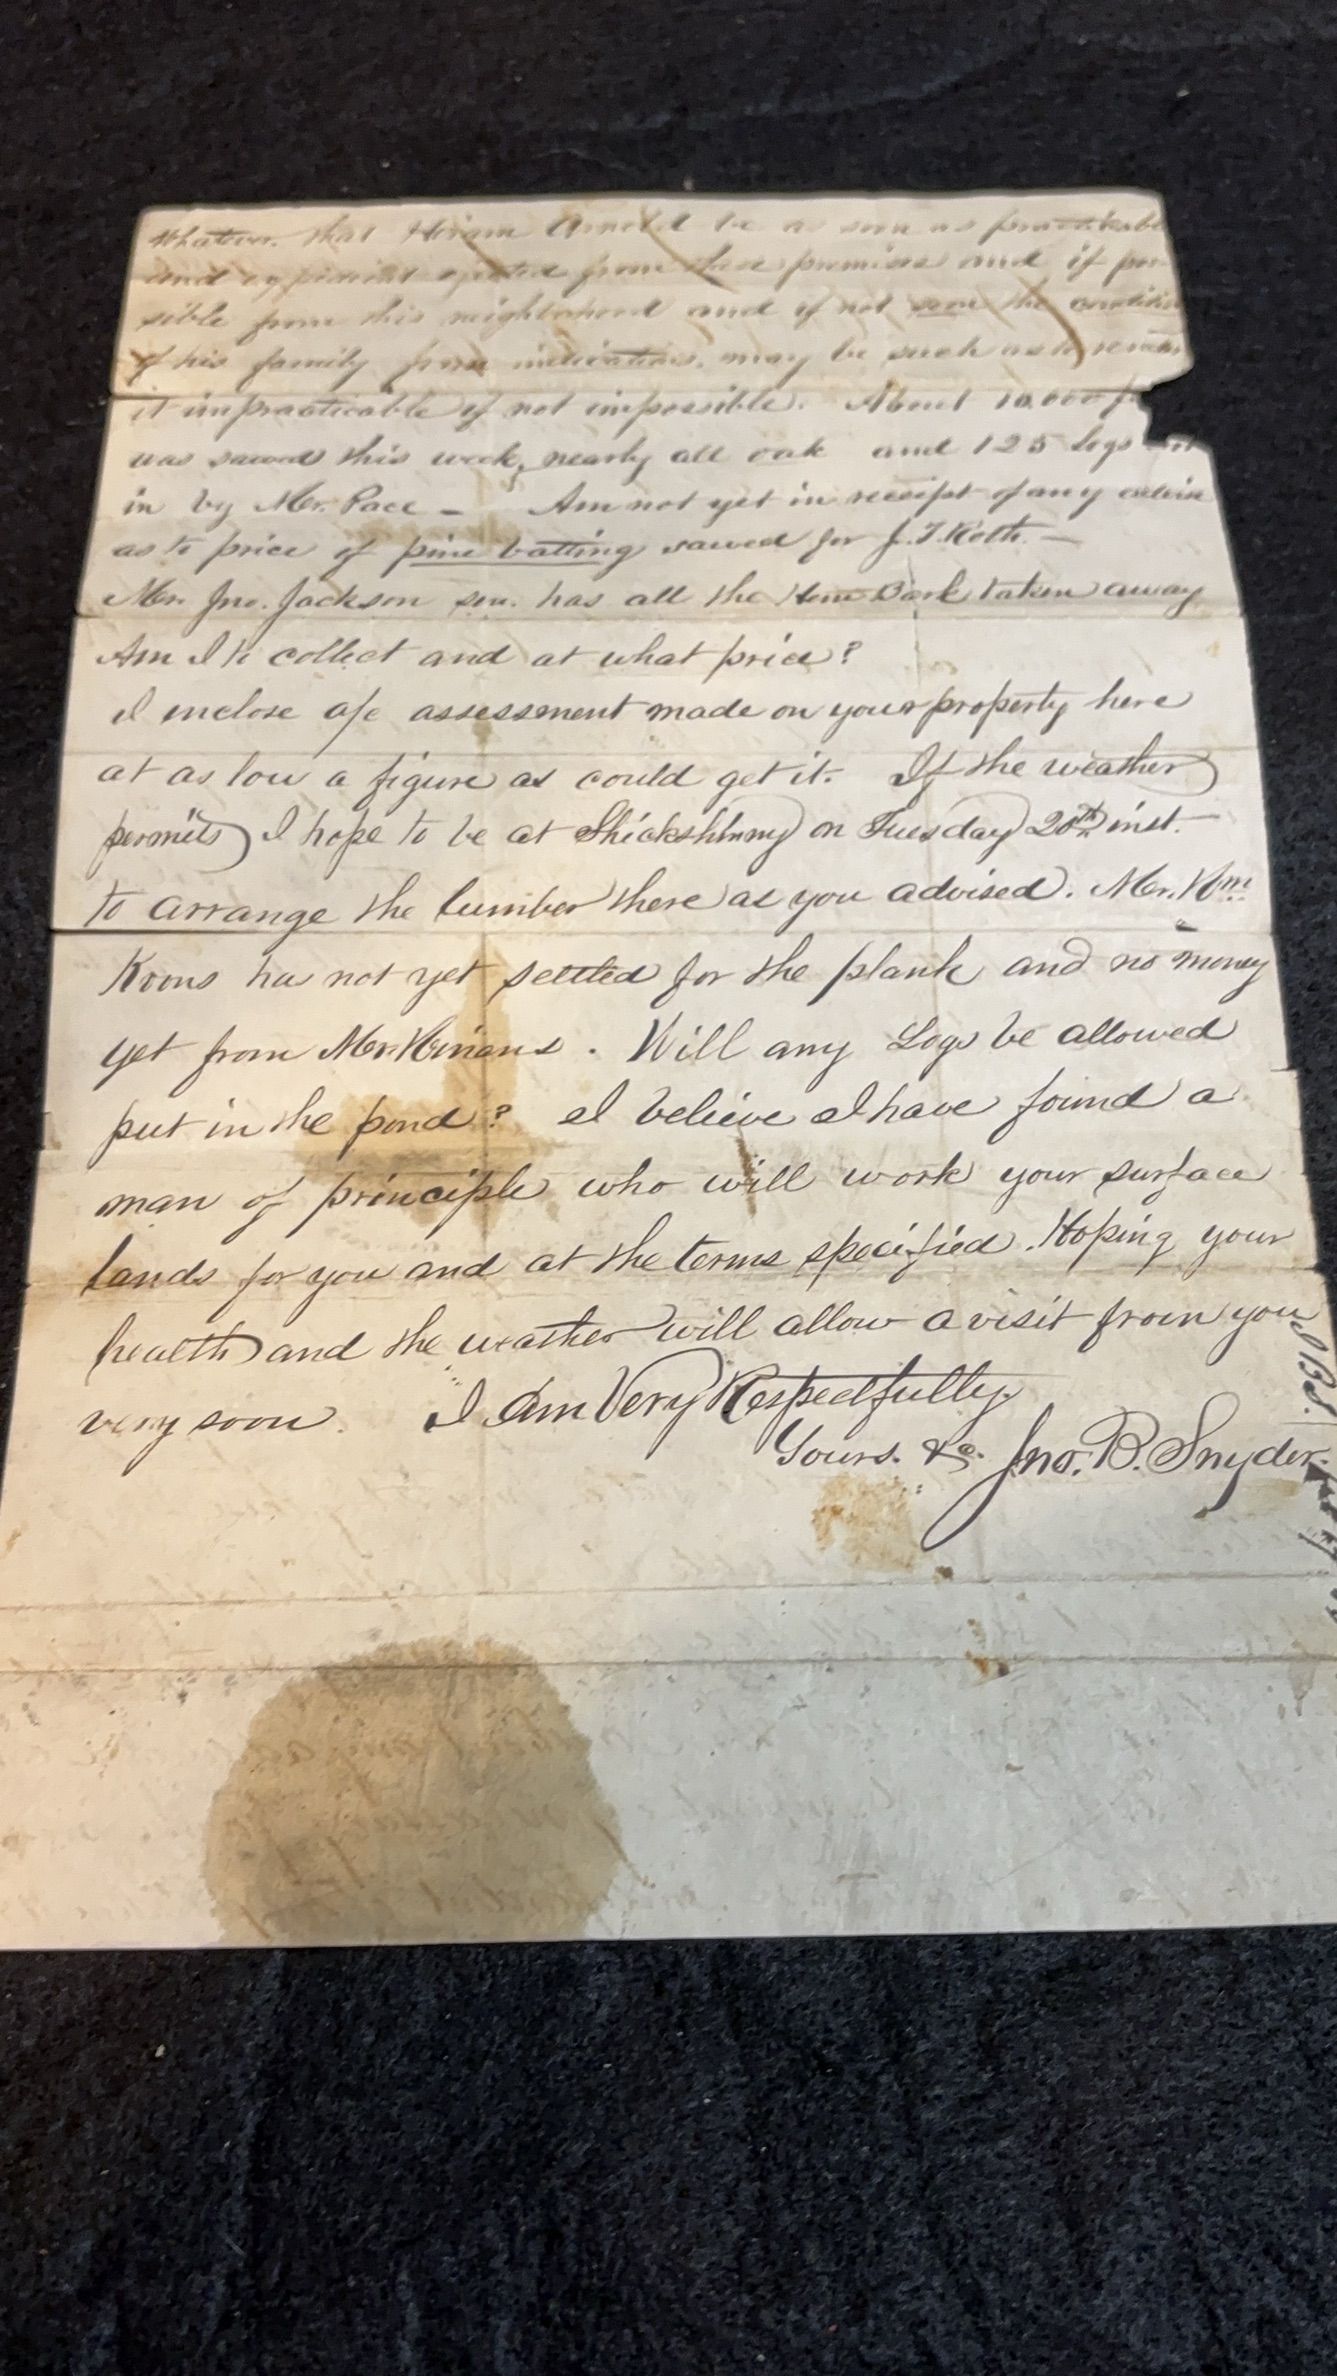 whatever. that Hiram Arnold be as soon as practicable
and expedient ejected from these premises and if pos-
sible from this neighborhood and if not soon the condition
of his family from indications. may be such as to render
it impracticable if not impossible. About 10,000 f
was sawed this week, nearly all oak and 125 Logs
in by Mr. Pace - Am not yet in receipt of any
as to price of pine batting sawed for J. T. Roth. -
Mr. Jno. Jackson sen. has all the Bark taken away
Am I to collect and at what price?
I inclose a/c assessment made on your property here
at as low a figure as could get it. If the weather
permits I hope to be at Shickshinny on Tuesday 20th inst. -
to arrange the lumber there as you advised. Mr. Wm
Koons has not yet settled for the plank and no money
yet from Mr. . Will any Logs be allowed
put in the pond? I believe I have found a
man of principle who will work your surface
lands for you and at the terms specified. Hoping your
health and the weather will allow a visit from you
very soon. I Am Very Respectfully.
Yours. &c. Jno. B. Snyder.
J.B.S.